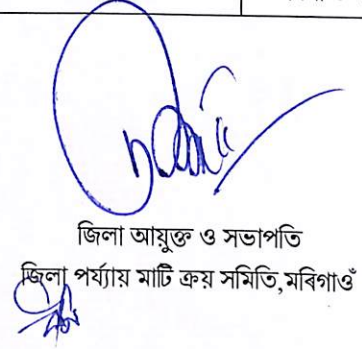 জিলা আয়ুক্ত ও সভাপতি
জিলা পৰ্য্যায় মাটি ক্ৰয় সমিতি,মৰিগাওঁ